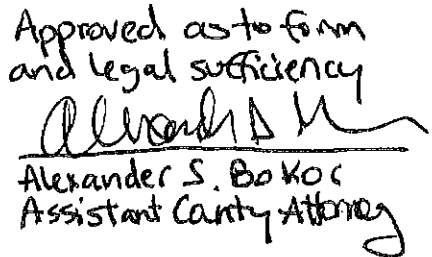 Approved as to form
and legal sufficiency
Alexander S. Bokor
Assistant County Attorney